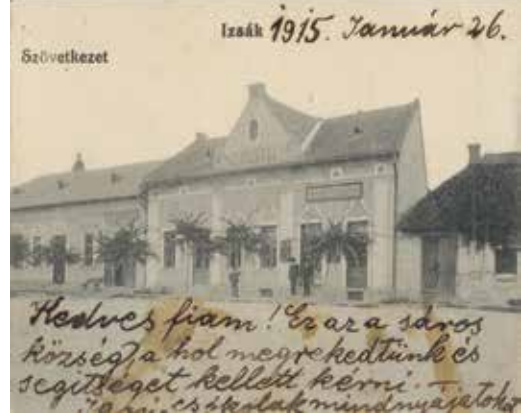 Izsák 1915. Január 26.
Szövetkezet
Kedves fiam! Ez az a sáros
község, a hol megrekedtünk és
segítséget kellett kérni. –
csókolak mindnyájatokat